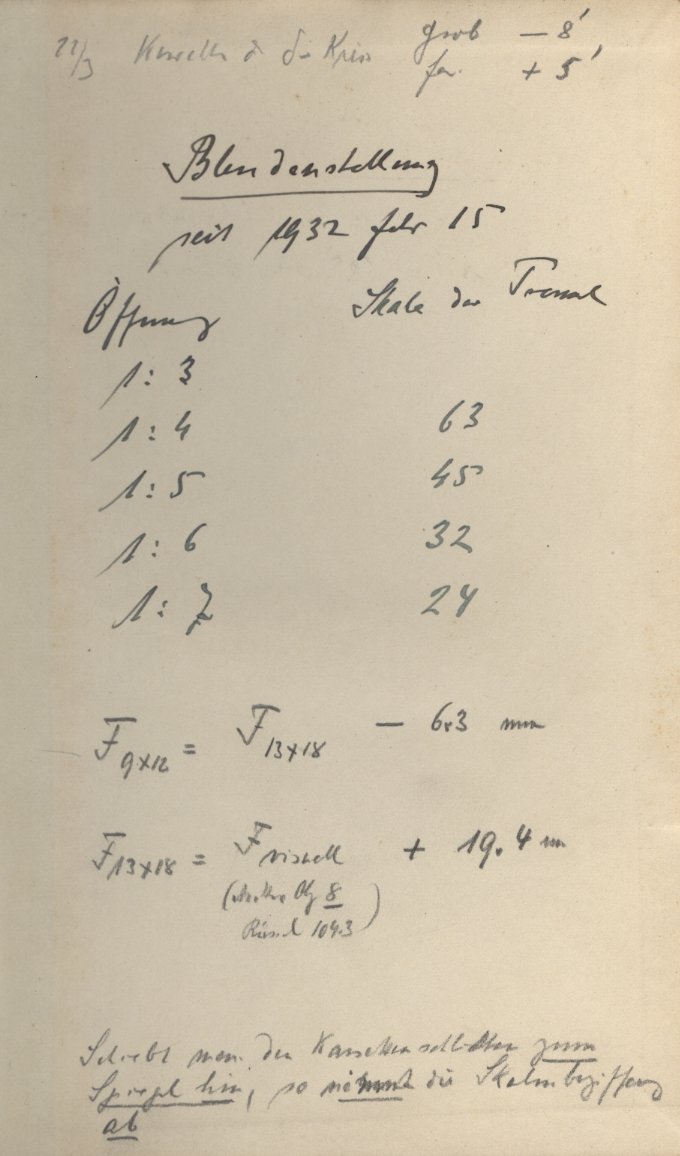 22/3 grob – 8'
+ 5'
Blendenstellung
seit 1932 febr 15
Öffnung Skala der Trommel
1:3
1:4 63
1:5 45
1:6 32
1:7 24
F 9x12 = F 13x18 – 6.3 mm
F 13x18 = F visuell + 19.4 mm
8
104.3
Schiebt man den Kassettenschlitten zum
Spiegel hin, so nimmt die Skalenbezifferung
ab